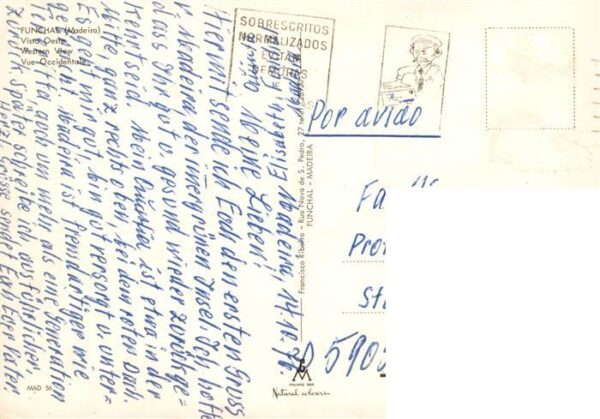 FUNCHAL (Madeira)
Vista Oeste
Western View
Vue Occidentale
SOBRESCRITOS
NORMALIZADOS
EVITAM
Por avião
Francisco Ribeiro - Rua Nova de S. Pedro, 27
FUNCHAL - MADEIRA
Fa
Pro
St
D 590
Elisabeth
Madeira, 14.
Meine Lieben!
Hiermit sende ich Euch den ersten Gruss
v. Madeira der immergrünen Insel. Ich hoffe
dass Ihr gut u. gesund wieder zurückge-
kehrt seid. Mein ist etwa in der
Mitte ganz rechts oben bei dem roten Dach.
Es geht mir gut, bin gut versorgt u. unter-
Madeira ist fremdartiger wie
auch mehr als eine Generation
zurück. Später schreibe ich ausführlicher.
Herzl. Grüsse sendet Euch Euer Vater.
MAD 56
Natural colours